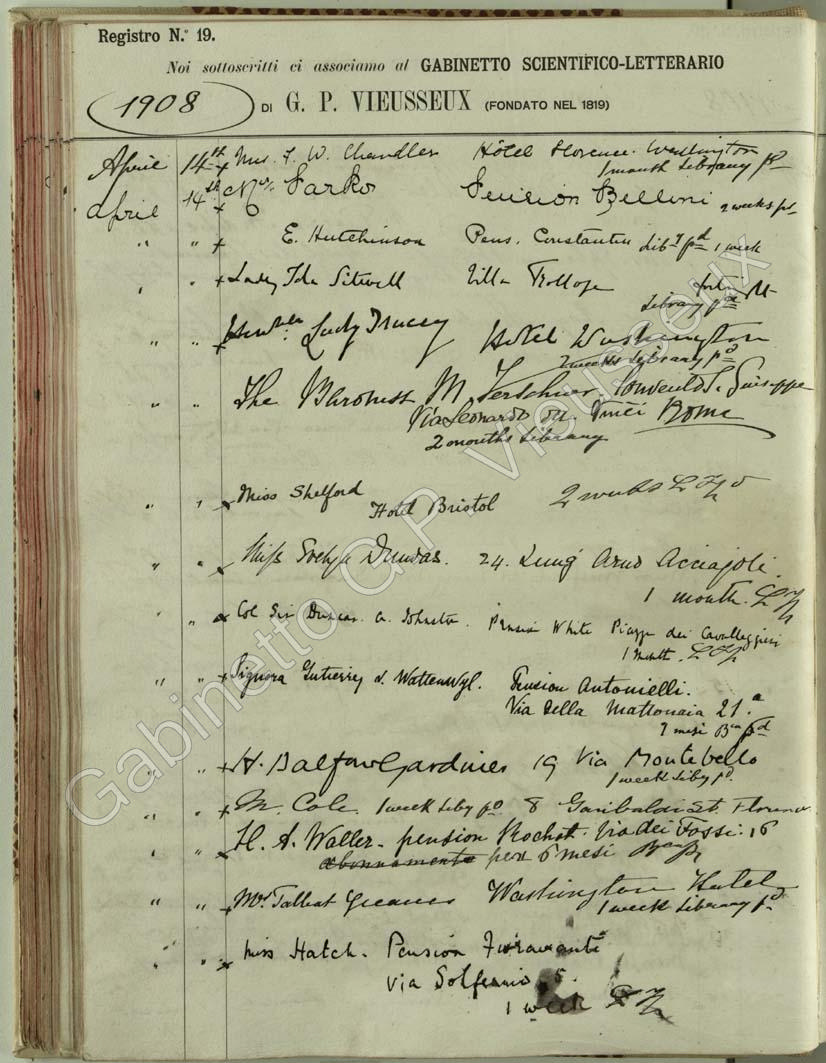 Registro N.º 19.
Noi sottoscritti ci associamo al GABINETTO SCIENTIFICO-LETTERARIO
1908 DI G. P. VIEUSSEUX (FONDATO NEL 1819)
April 14th Mrs. F. W. Chandler Hôtel Florence Washington
1 month Library pd
April 14th Pension Bellini 2 weeks pd
" " E. Hutchinson Pens. Constantin Liby pd 1 week
" " Lady Ida Sitwell Villa Trollope
Library pd
" " Lady Tracey Hotel Washington
2 weeks Library pd
" " The Baroness M. Convento S. Giuseppe
Via Leonardo da Vinci Rome
2 months Library
" " Miss Shelford
Hotel Bristol 2 weeks
" " Miss Evelyn Dundas. 24. Lung' Arno Acciajoli.
1 month.
" " Col Sir Duncan A. Johnston. Pension White Piazza dei Cavalleggieri
1 month.
" " Signora Gutierrez d. Wattenwyl. Pension Antonielli.
Via Della Mattonaia 21.a
mesi pd
" " H. Balfour Gardiner 19 Via Montebello
1 week Liby pd.
" " M. Cole. 1 week Liby pd 8 Garibaldi St. Florence
" " H. A. Waller - pension Rochat. Via dei Fossi. 16
abbonamento per 6 mesi
" " Mrs Talbot Greaves Washington Hotel
1 week Library pd
" " Miss Hatch. Pension Fioravanti
via Solferino 5.
1 week
Gabinetto G.P. Vieusseux